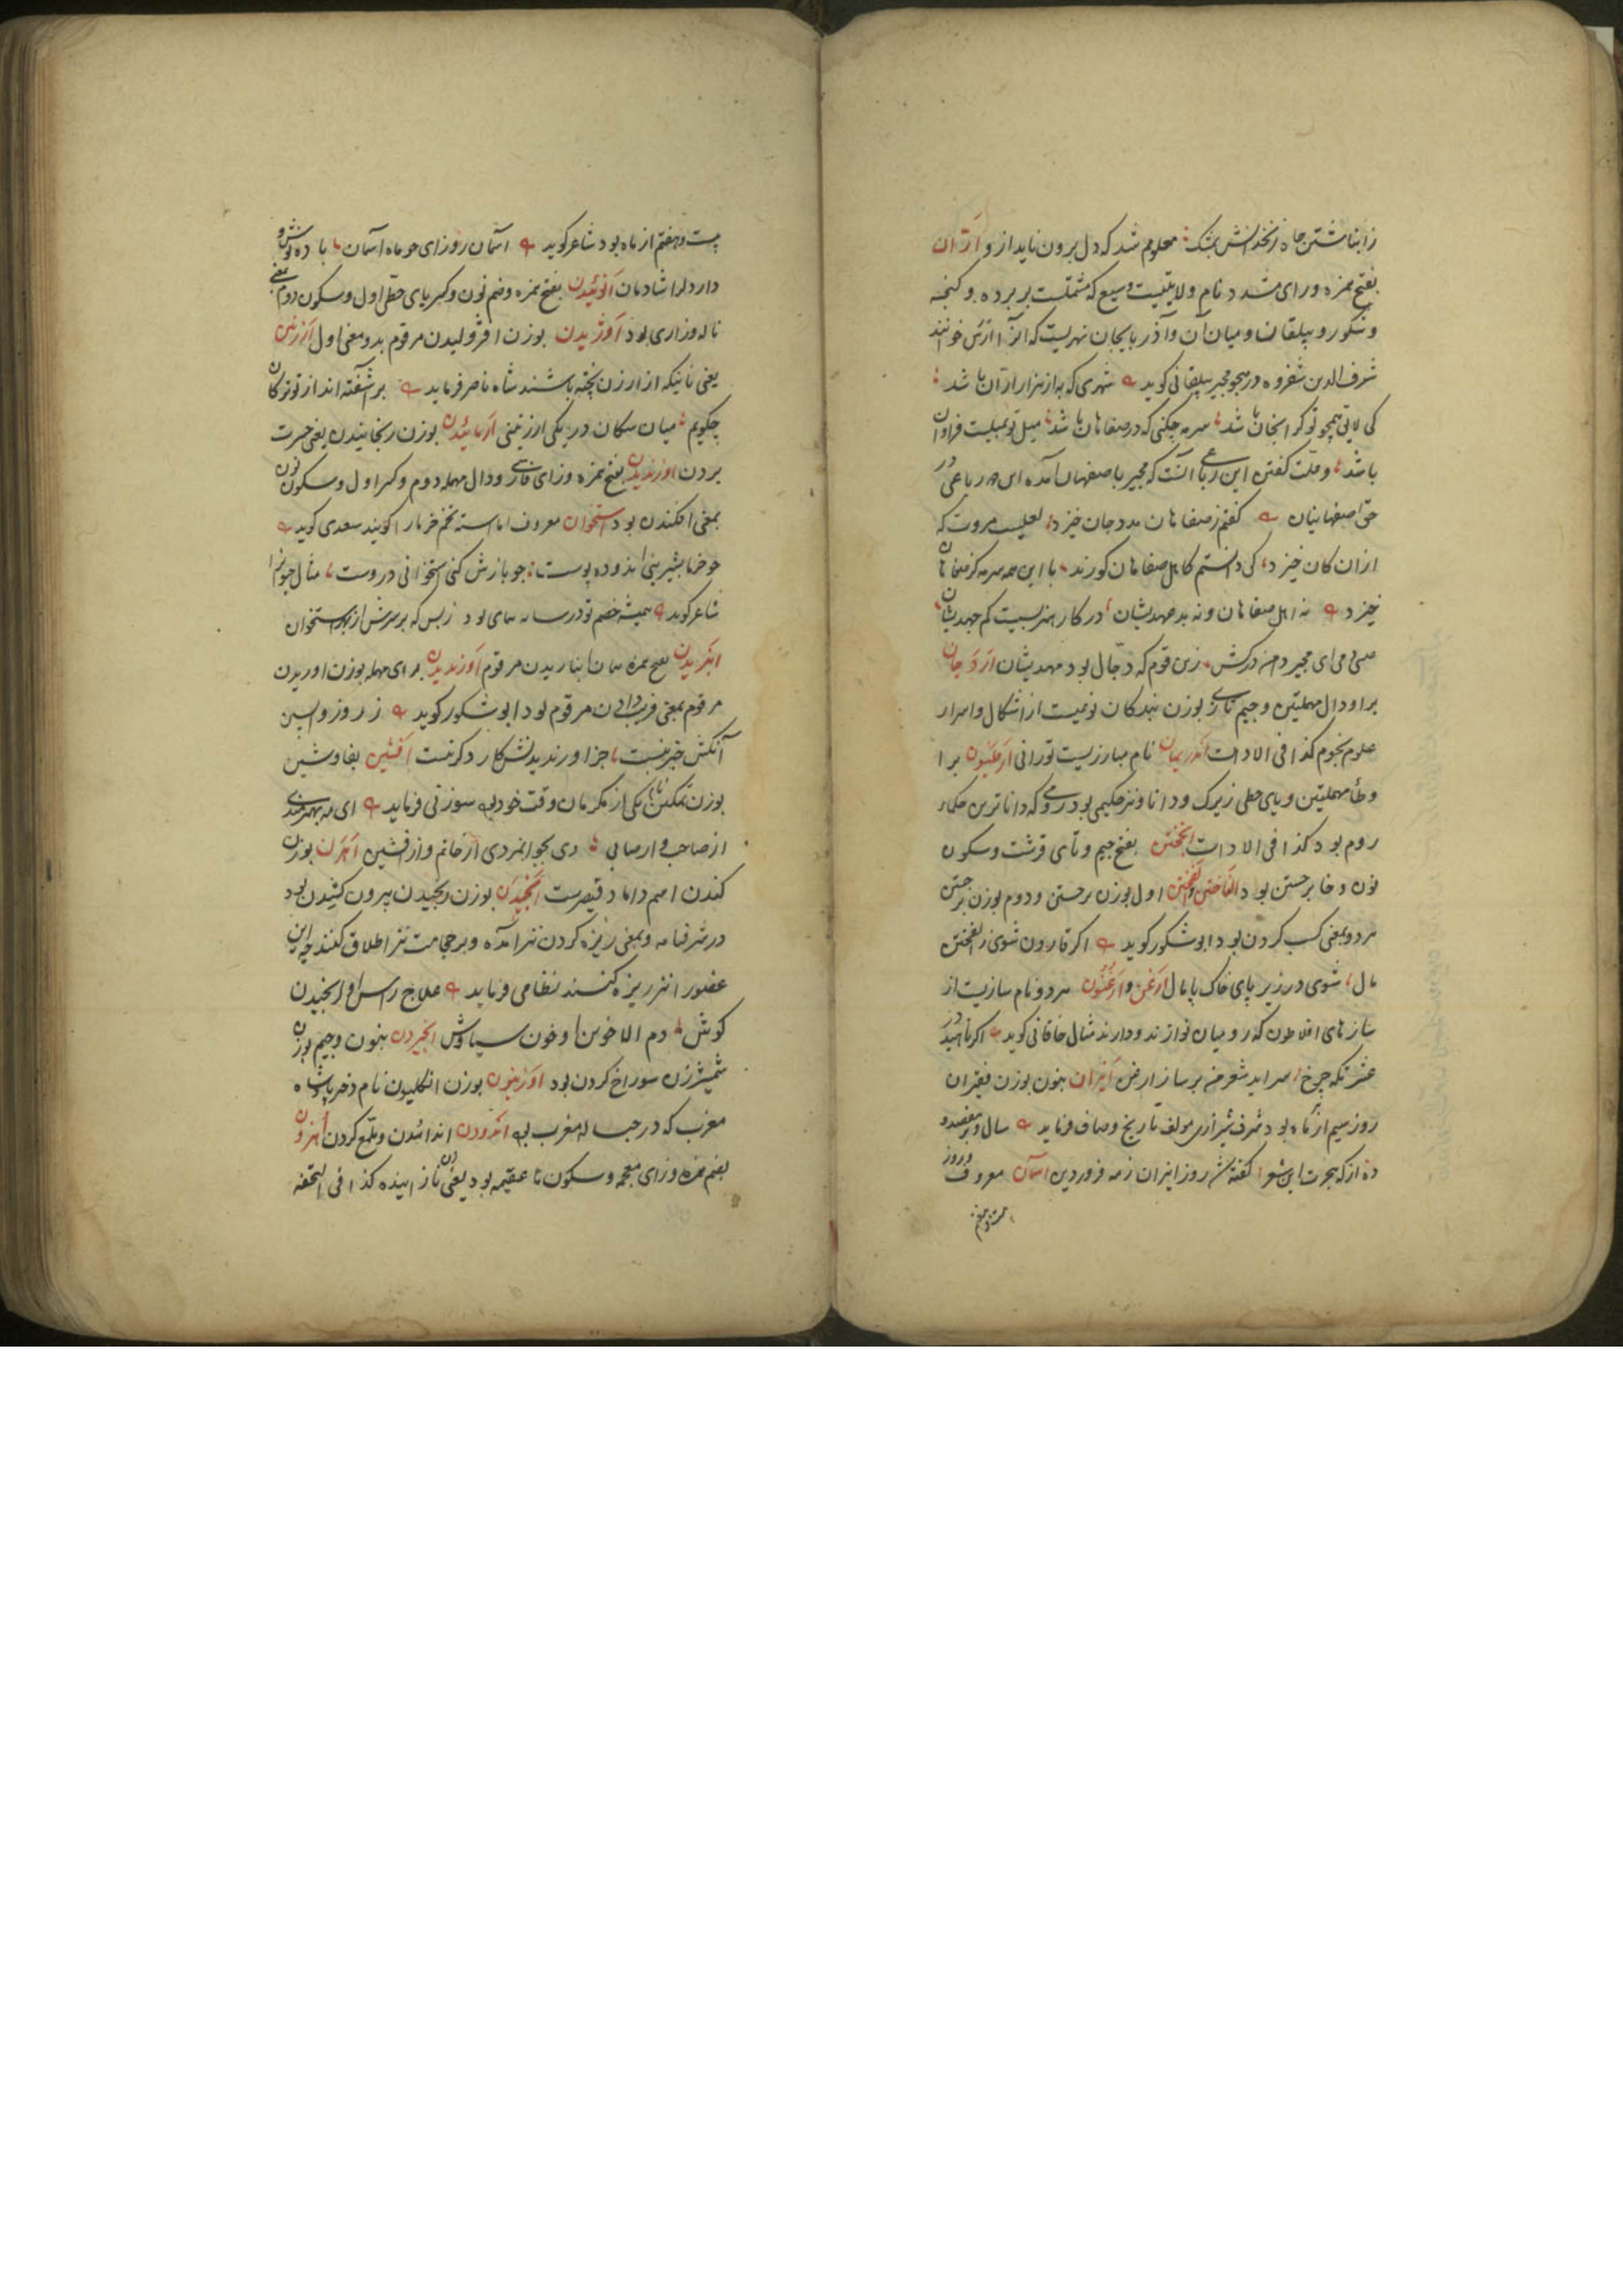 زانباشتن چاه زنخدانش بمشک معلوم شد که دل برون ناید از و ارّان
بفتح همزه و رای مشدد نام ولایتیست وسیع که مشتملست بر برده و گنجه
و شکور و بیلقان و میان آن و آذربایجان نهریست که آنرا ارس خوانند
شرف الدین شفروه در هجو مجیر بیلقانی گوید شهری که به از هزار ارّان باشد
کی لایق همچو تو گر انجان باشد سرمه چکنی که در صفاهان باشد میل تو بمیلیست فراوان
باشد و علت گفتن این رباعی آنست که مجیر باصفهان آمده این رباعی در
حق اصفهانیان گفتم ز صفاهان مدد جان خیزد لعلیست مروت که
از ان کان خیزد کی دانستم کاهل صفاهان کورند با این همه سرمه کز صفاهان
خیزد نه اهل صفاهان و نه بد عهدیشان در کار هنر بسیست کم جهدیشان
می ای مجیر دامن درکش زین قوم که دجال بود مهدیشان اردجان
برا و دال مهملتین و جیم تازی بوزن بندگان نوعیست از اشکال و اسرار
علوم نجوم کذا فی الادات اندریمان نام مبارزیست تورانی ارطیون برا
و طأ مهملتین و یای حطی زیرک و دانا و نیز حکیمی بود رومی که داناترین حکماء
روم بود کذا فی الادات انجختن بفتح جیم و تای قرشت و سکون
نون و خا برجستن بود الفاختن و الفختن اول بوزن برجستن و دوم بوزن برجستن
هر دو بمعنی کسب کردن بود ابوشکور گوید اگر قارون شوی ز الفختن
مال شوی در زیر پای خاک پامال ارغن و ارغنون هر دو نام سازیست از
سازهای افلاطون که رومیان نوازند و دارند مثال خاقانی گوید اگر ناهید در
عشرتگه چرخ سراید شعر من بر ساز ارغن انیران بنون بوزن فقیران
روز سیم از ماه بود شرف شیرازی مولف تاریخ وصاف فرماید سال و بر هفصد و
ده از گه هجرت این شعر گفتش روز انیران ز مه فروردین آسمان معروف و روز
بیست و هفتم
بیست و هفتم از ماه بود شاعر گوید آسمان روز ای چو ماه آسمان باده نوش و
دار دلرا شادمان انوئیدن بفتح همزه و ضم نون و کسر یای حطی اول و سکون دوم بمعنی
ناله و زاری بود اوژیدن بوزن افژولیدن مرقوم بدو معنی اول ارزنین
یعنی نانیکه از ارزن پخته باشند شاه ناصر فرماید بر شفته اند از تو ترکان
چگویم میان سگان در یکی ارزنینی ارمائیدن بوزن رنجانیدن یعنی حسرت
بردن اوزندیدن بفتح همزه و زای فارسی و دال مهمله دوم و کسر اول و سکون نون
بمعنی افکندن بود استخوان معروف اما استه تخم خرما را گویند سعدی گوید
چو خرما بشیرینی اندوده پوست چو بازش کنی استخوانی دروست مثال چو نرا
شاعر گوید همیشه خصم تو در سایه همای بود زبس که بر سرش از بهر استخوان
انبریدن بفتح همزه همان انباریدن مرقوم اورندیدن برای مهمله بوزن اوریدن
مرقوم بمعنی فریب دادن مرقوم بود ابوشکور گوید ز روز واپسین
آنکش خبر نیست جز اورندیدنش کار دگر نیست افشین بفا و شین
بوزن تمکین نام یکی از مکرمان وقت خود بود سوزنی فرماید ای به هنرمندی
از صاحب و از صابی وی بجوانمردی از حاتم و از افشین اهرن بوزن
کندن اسم داماد قیصرست انجیدن بوزن رنجیدن بیرون کشیدن بود
در شرفنامه و بمعنی ریزه کردن نیز آمده و بر حجامت نیز اطلاق کنند چه این
عضو را نیز ریزه کنند نظامی فرماید علاج راس او انجیدن
گوش دم الاخوین او خون سیاوش انجیردن بنون و جیم بوزن
شمشیر زن سوراخ کردن بود اوزبنون بوزن انگلیون نام دختر پادشاه
مغرب که در حباله مغرب بود اندودن اندائیدن و ملمع کردن اهزون
بضم همزه و زای معجمه و سکون ها عقیمه بود یعنی زن نازاینده کذا فی التحفه